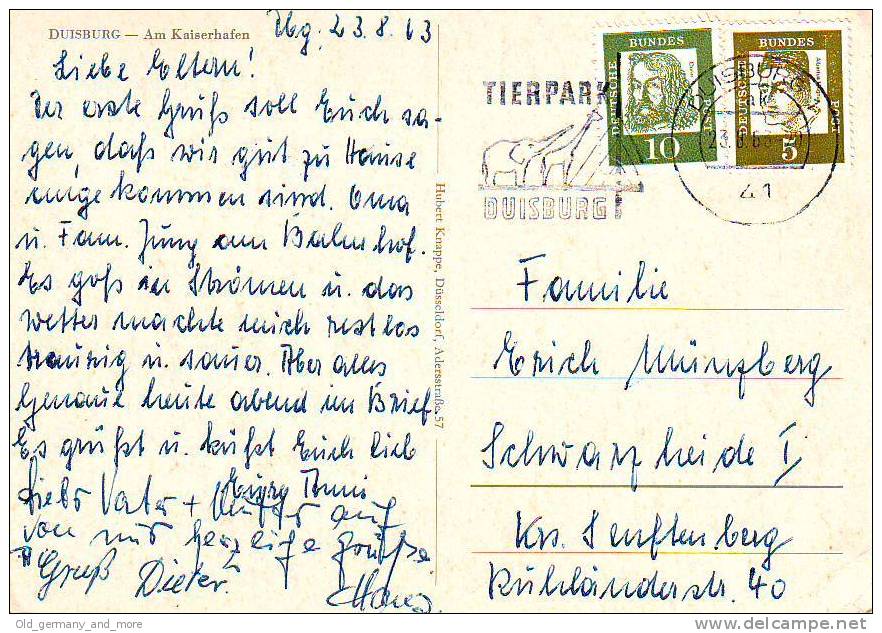 DUISBURG — Am Kaiserhafen
Dbg. 23.8.63
Liebe Eltern!
Der erste Gruß soll Euch sa-
gen, daß wir gut zu Hause
angekommen sind. Oma
u. Fam. Jung am Bahnhof.
Es goß in Strömen u. das
Wetter machte mich restlos
traurig u. sauer. Aber alles
Genaue heute abend im Brief.
Es grüßt u. küßt Euch lieb
Eure Anni
Liebe Vater + Mutter auch
von mir herzliche Grüße
Gruß Dieter.
Hans
Hubert Knappe, Düsseldorf, Adersstraße 57
TIERPARK
DUISBURG
DEUTSCHE BUNDESPOST
10
DEUTSCHE BUNDESPOST
5
DUISBURG
41
Familie
Erich Münzberg
Schwarzheide I,
Krs. Senftenberg
Ruhlanderstr. 40
Old_germany_and_more
delcampe.net